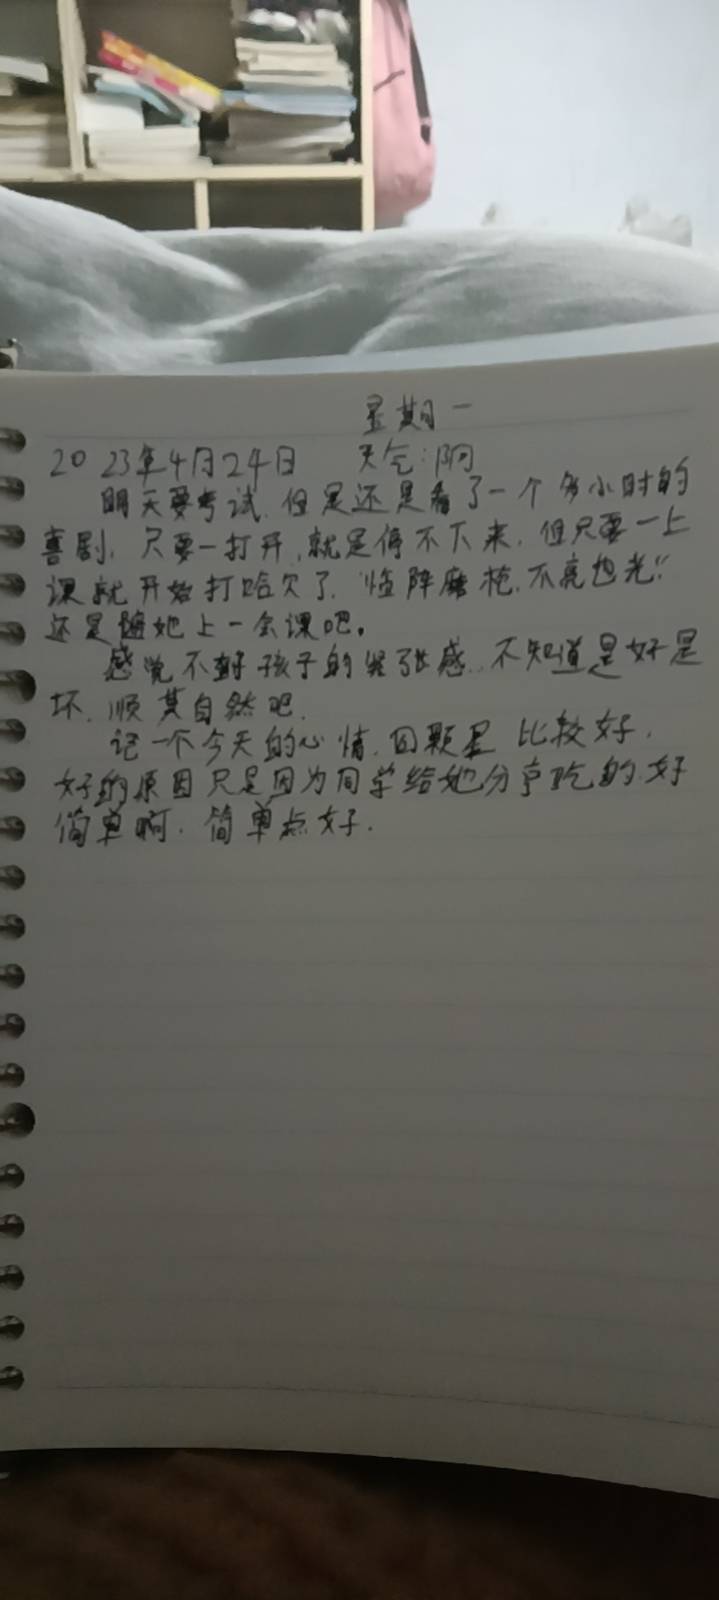 星期一
2023年4月24日 天气:阴
明天要考试,但是还是看了一个多小时的
喜剧,只要一打开,就是停不下来,但只要一上
课就开始打哈欠了,“临阵磨枪,不亮也光”
还是随她上一会课吧。
感觉不到孩子的紧张感,不知道是好是
坏,顺其自然吧,
记一个今天的心情,四颗星 比较好,
好的原因只是因为同学给她分享吃的,好
简单啊,简单点好.